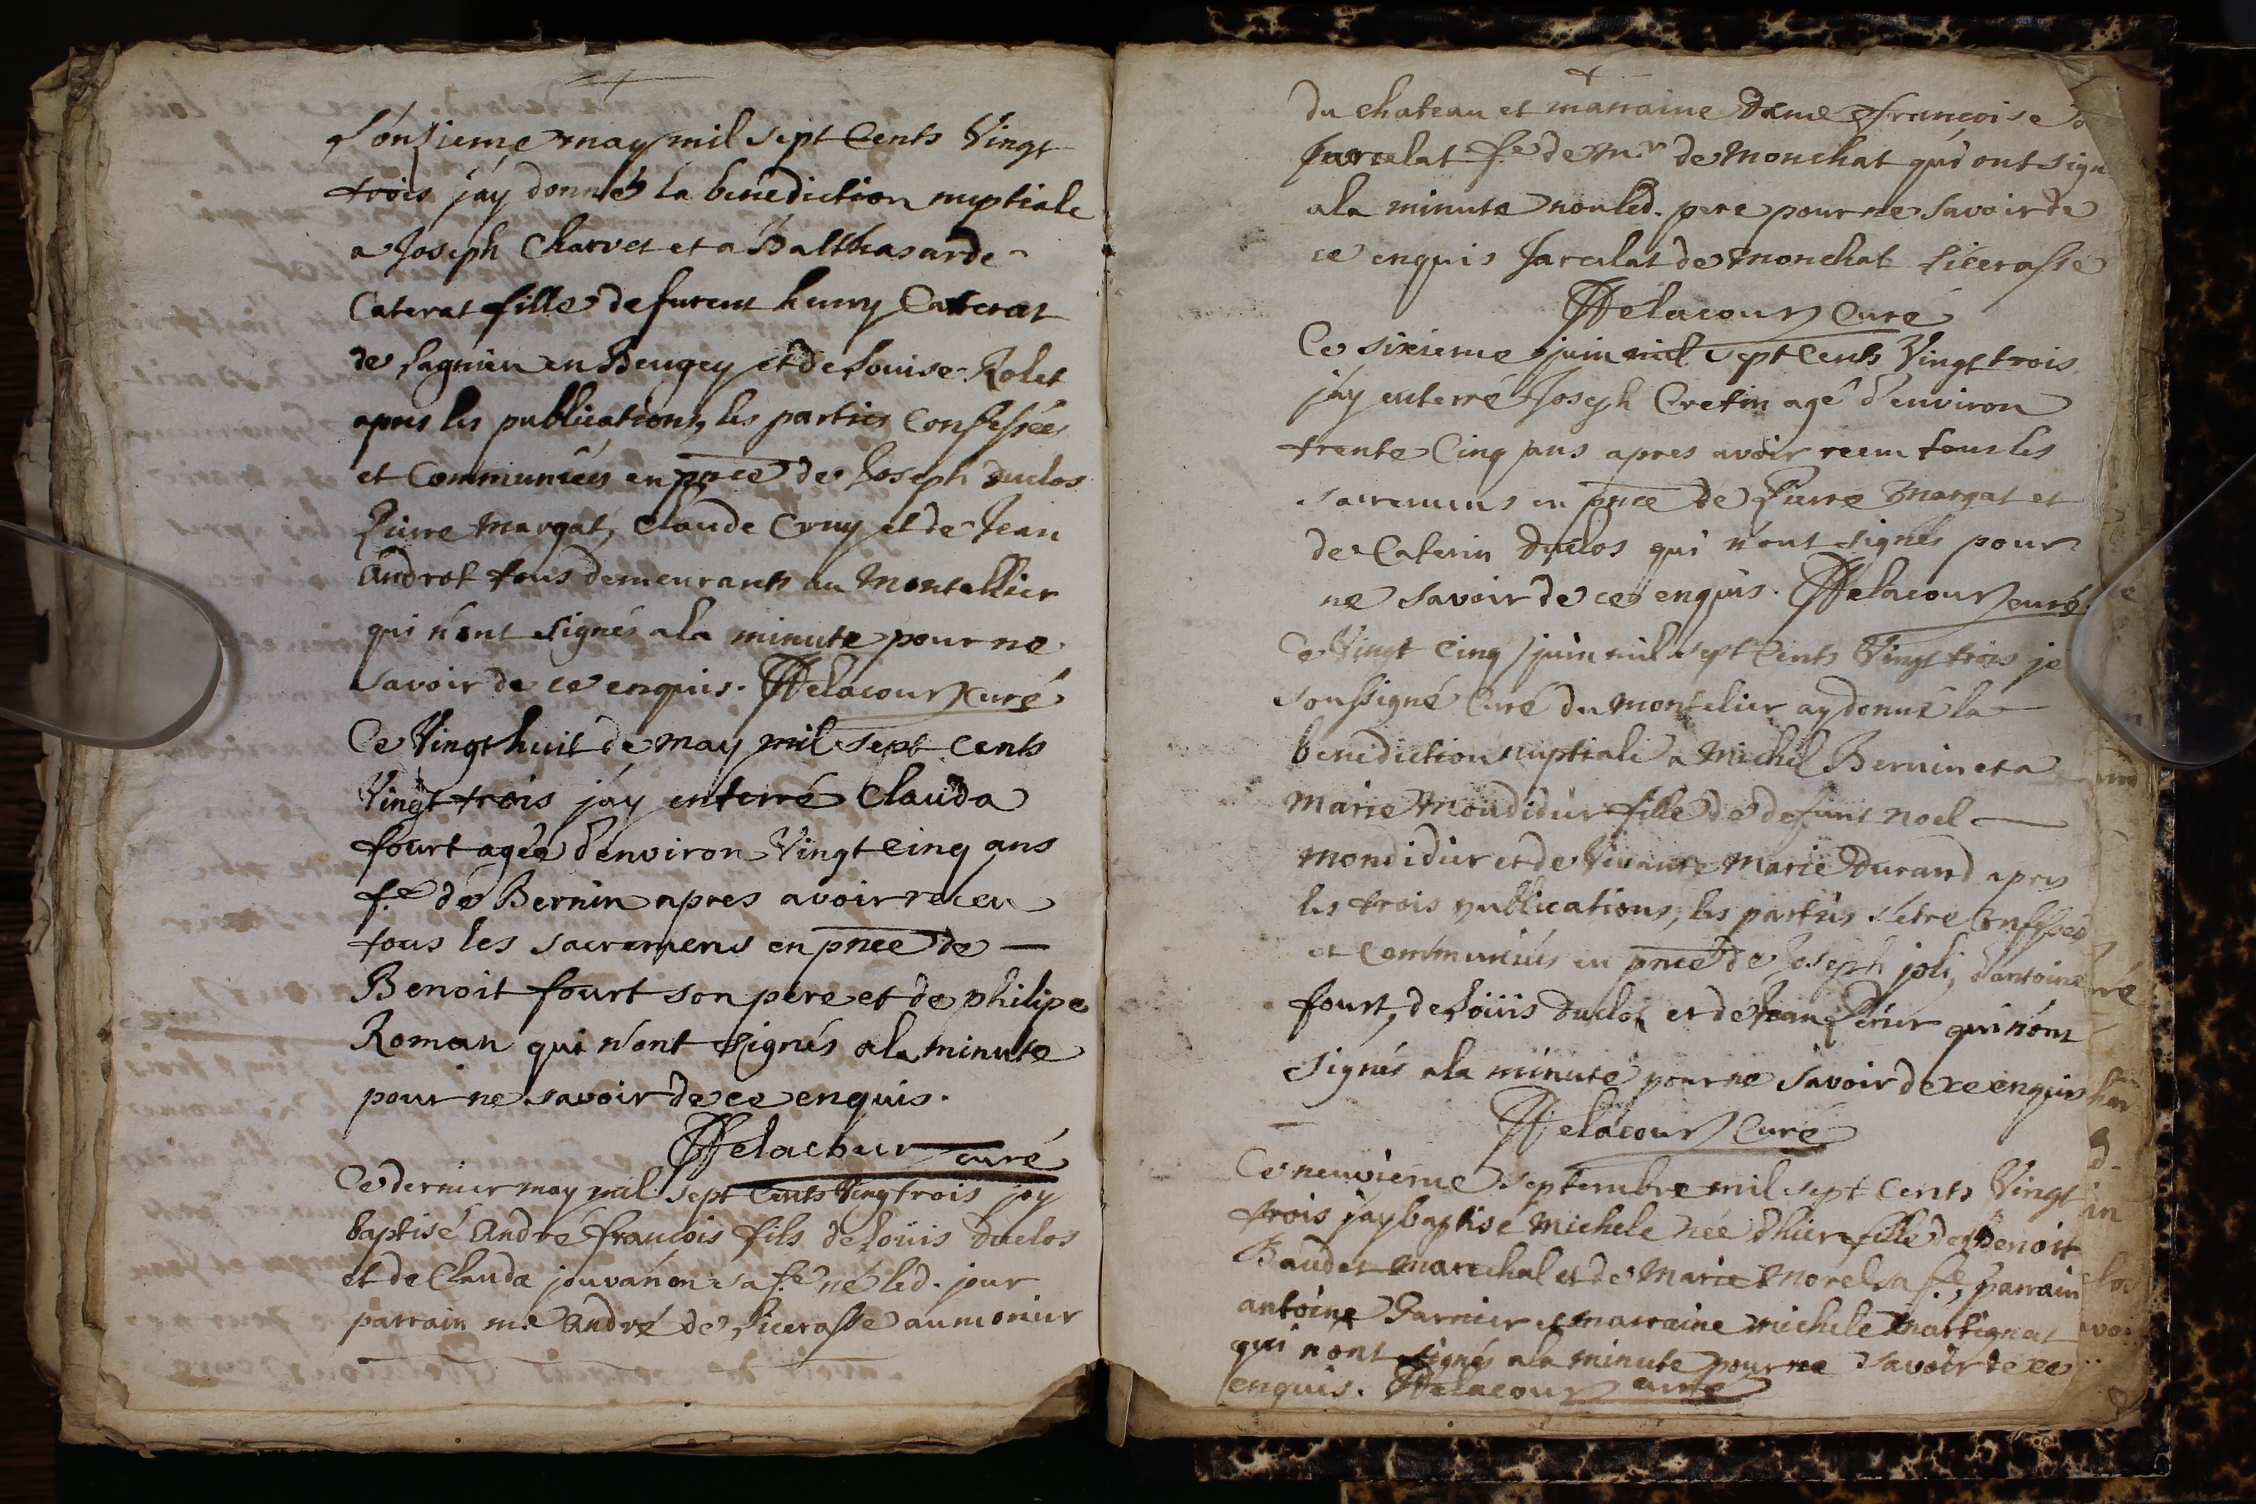 L'onzieme may mil sept Cents Vingt
trois j'ay donnés la benediction nuptiale
a Joseph Charvet et a Balthasarde
Caterat fille de furent Caterat
de Lagnieu en Beugey et de Louise Rolet
apres les publications, les parties Confessées
et Communiées en pnce de Joseph Duclos
Pierre Margat, Claude et de Jean
Androt tous demeurants au Montellier
qui n'ont signés a la minute pour ne
savoir de ce enquis. Delacour curé
Ce Vingt huit de may mil sept cents
Vingt trois j'ay enterré Clauda
fourt agée d'environ Vingt cinq ans
f.e de Bernin apres avoir receu
tous les sacremens en pnce de
Benoit fourt son pere et de philipe
Roman qui n'ont signés a la minute
pour ne savoir de ce enquis.
Delacour curé
Ce dernier may mil sept Cents Vingtrois j'ay
baptisé André francois fils de Loüis Duclos
et de Clauda jouvanon sa f.e né led. jour
parrain m.e André de Licerasse aumonier
du chateau et marraine Dame françoise
Jarcelat f.e de M.r de Monchat qui ont sign
a la minute non led. pere pour ne savoir de
ce enquis Jarcelat de Monchat Licerasse
Delacour Curé
Ce sixieme juin mil sept Cents Vingt trois
j'ay enterré Joseph Cretin agé d'environ
trente Cinq ans apres avoir receu tous les
sacremens en pnce de Pierre Margat et
de Caterin Duclos qui n'ont signés pour
ne savoir de ce enquis. Delacour curé
Ce Vingt cinq juin mil sept Cents Vingt trois je
soussigné Curé du Montelier ay donné la
benediction nuptiale a Michel Bernin et a
Marie Mondidier fille de defunt Noel
Mondidier et de Vivante Marie Durand apres
les trois publications, les parties s'etre Confessés
et Communiés en pnce de Joseph joli, d'antoine
fourt, de Loüis Duclos et de Jean qui n'ont
signés a la minute pour ne savoir de ce enquis
Delacour Curé
Ce neuvieme septembre mil sept Cents Vingt
trois j'ay baptise Michele née d'hier fille de Benoit
Baudet Marechal et de Marie Morel sa f.e, parrain
antoine Garnier et marraine michele Martignat
qui n'ont signés a la minute pour ne savoir de ce
enquis. Delacour curé